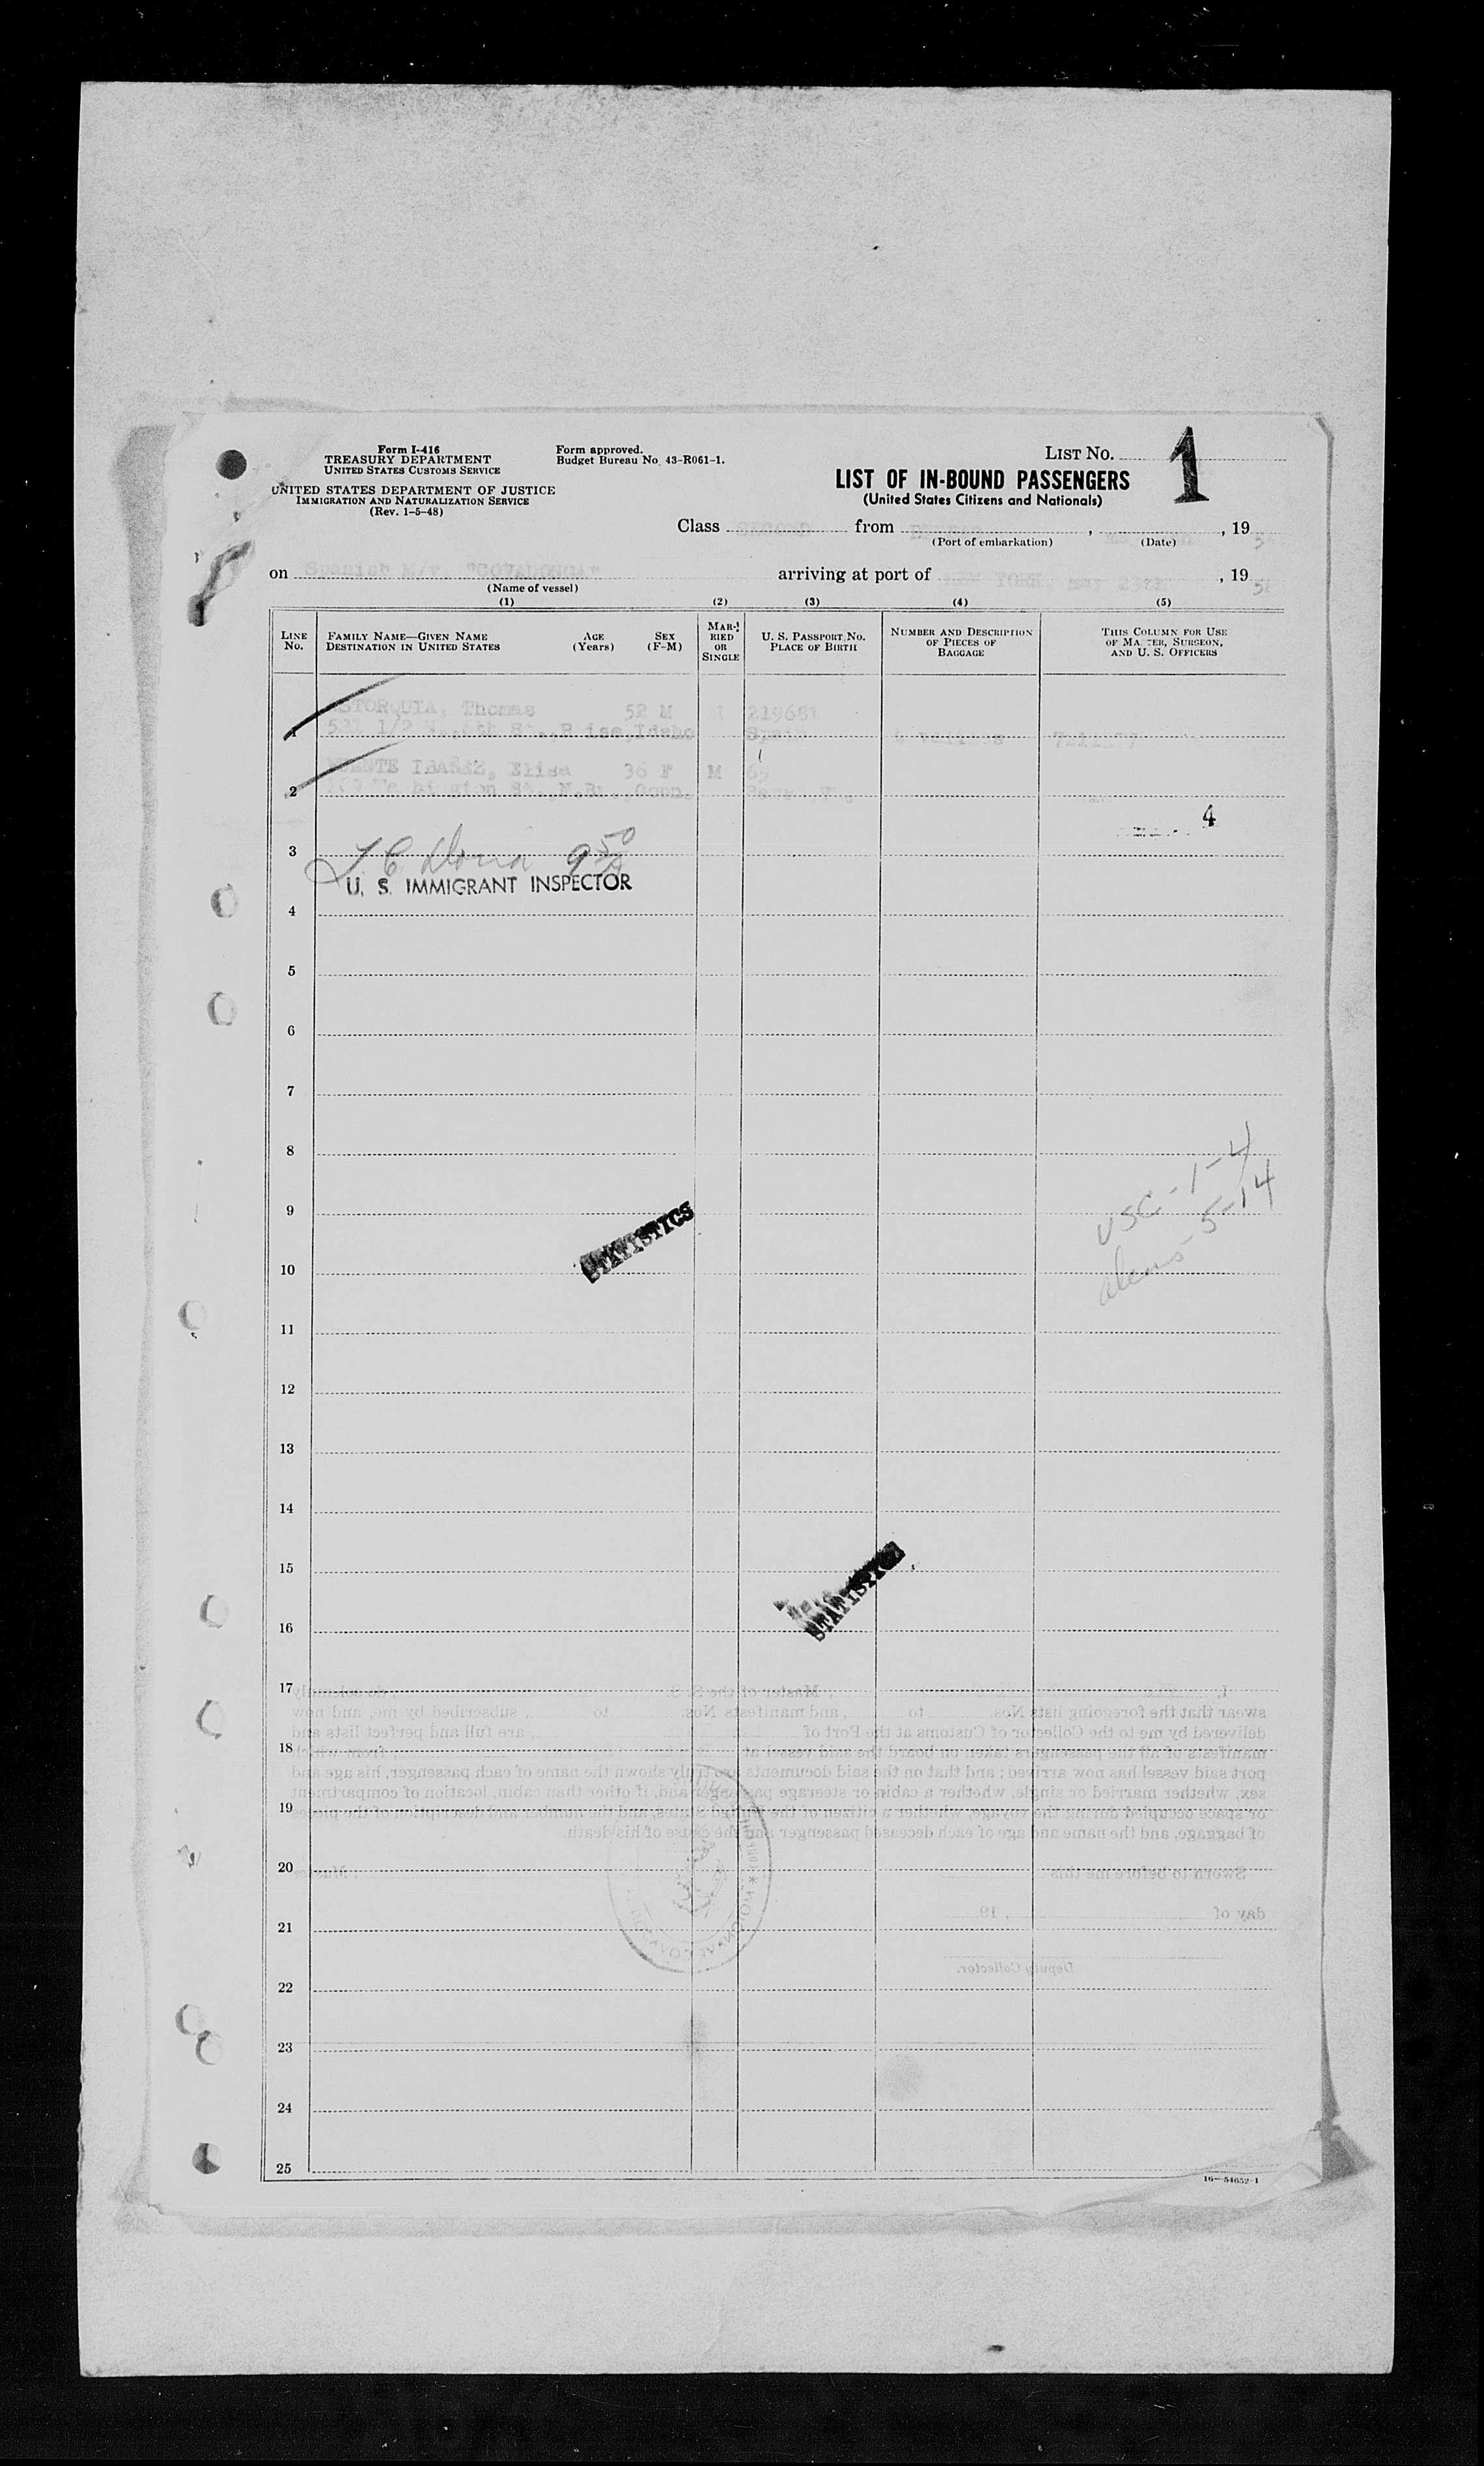 Form I-416
TREASURY DEPARTMENT
UNITED STATES CUSTOMS SERVICE
UNITED STATES DEPARTMENT OF JUSTICE
IMMIGRATION AND NATURALIZATION SERVICE
(Rev. 1-5-48)
Form approved.
Budget Bureau No. 43-R061-1.
LIST NO. 1
LIST OF IN-BOUND PASSENGERS
(United States Citizens and Nationals)
Class SECOND from , , 19
(Port of embarkation) (Date)
on Spanish M/V. "COVADONGA" arriving at port of NEW YORK, may 23rd , 19
(Name of vessel)
(1) (2) (3) (4) (5)
LINE NO.
FAMILY NAME—GIVEN NAME
DESTINATION IN UNITED STATES
AGE (Years)
SEX (F-M)
MARRIED OR SINGLE
U. S. PASSPORT NO.
PLACE OF BIRTH
NUMBER AND DESCRIPTION OF PIECES OF BAGGAGE
THIS COLUMN FOR USE OF MASTER, SURGEON, AND U. S. OFFICERS
Thomas 52 M M 219681
1 1/2 St., Idaho Spain 4
IBAÑEZ, Elisa 36 F M 65
2 St., Conn.
4
3
U. S. IMMIGRANT INSPECTOR
4
5
6
7
8
USC - 1-4
9
aliens - 5-14
STATISTICS
10
11
12
13
14
15
STATISTICS
16
17
I, , Master of the S. S. , do solemnly
swear that the foregoing lists Nos. to , and manifests Nos. to , subscribed by me, and now
delivered by me to the Collector of Customs at the Port of , are full and perfect lists and
18
manifests of all the passengers taken on board the said vessel at , from which
port said vessel has now arrived; and that on the said documents are truly shown the name of each passenger, his age and
sex, whether married or single, whether a cabin or steerage passenger and, if other than cabin, location of compartment
19
or space occupied during the voyage, whether a citizen of the United States, and the number and description of the pieces
of baggage, and the name and age of each deceased passenger and the cause of his death.
20
Sworn to before me this , Master
21
day of , 19
Deputy Collector.
22
23
24
25
16—54652-1